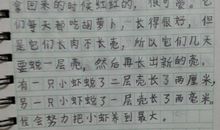 拿回来的时候红红的，很可爱。它
们每天都吃胡萝卜，长得很好，但
是它们长肉不长壳，所以它们几天
要蜕一层壳，然后再长出新的壳。
有一只小虾蜕了二层壳长了两厘米，
另一只小虾蜕了一层壳长了两毫米，
我会努力把小虾养到最大。